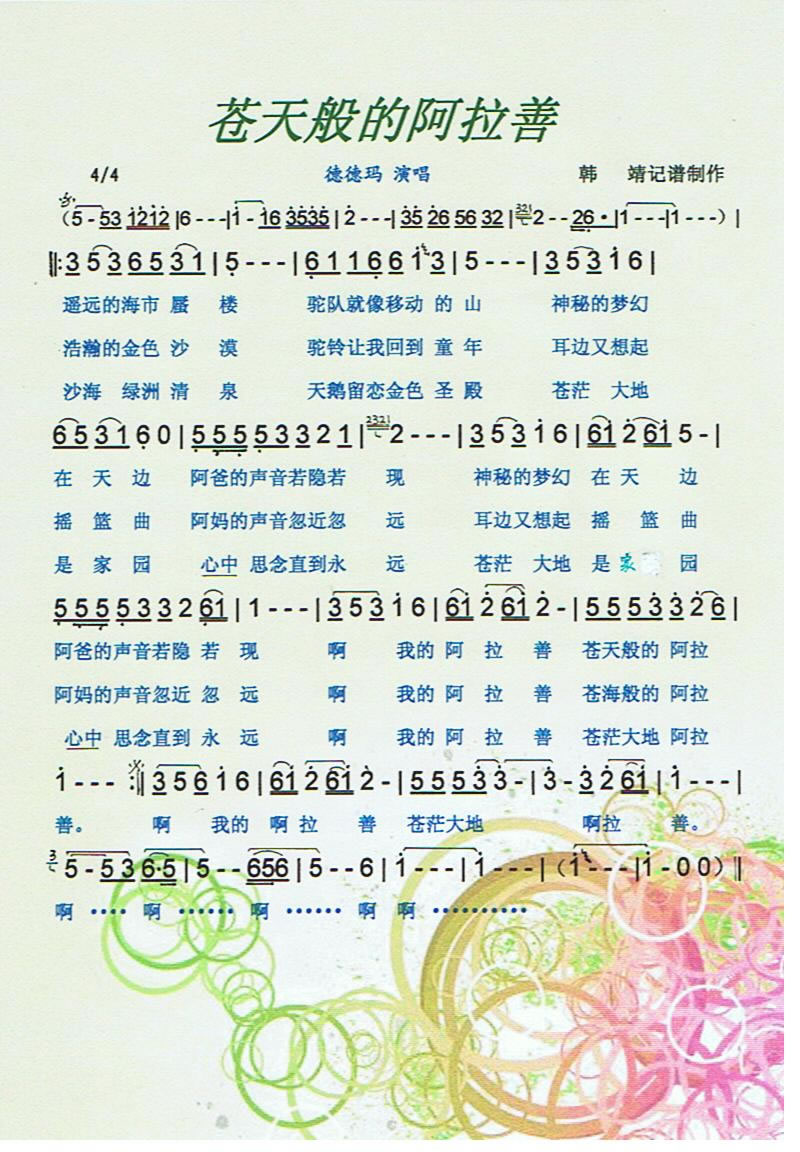 苍天般的阿拉善
4/4 德德玛 演唱 韩 靖记谱制作
(5-53 1212 |6---|1-16 3535 |2---|35 26 56 32 |321 2--26·|1---|1---)|
‖:3 5 3 6 5 3 1 | 5--- | 6 1 1 6 6 1 3 | 5--- | 3 5 3 1 6 |
遥远的海市 蜃 楼 驼队就像移动 的 山 神秘的梦幻
浩瀚的金色 沙 漠 驼铃让我回到 童 年 耳边又想起
沙海 绿洲 清 泉 天鹅留恋金色 圣 殿 苍茫 大地
6 5 3 1 6 0 | 5 5 5 5 3 3 2 1 | 2321 2--- | 3 5 3 1 6 | 61 2 61 5- |
在 天 边 阿爸的声音若隐若 现 神秘的梦幻 在 天 边
摇 篮 曲 阿妈的声音忽近忽 远 耳边又想起 摇 篮 曲
是 家 园 心中 思念直到永 远 苍茫 大地 是 家 园
5 5 5 5 3 3 2 61 | 1--- | 3 5 3 1 6 | 61 2 61 2- | 5 5 5 3 3 2 6 |
阿爸的声音若隐 若 现 啊 我的 阿 拉 善 苍天般的 阿拉
阿妈的声音忽近 忽 远 啊 我的 阿 拉 善 苍海般的 阿拉
心中 思念直到 永 远 啊 我的 阿 拉 善 苍茫大地 阿拉
1--- :‖ 3 5 6 1 6 | 61 2 61 2- | 5 5 5 3 3- | 3- 3 2 61 | 1--- |
善。 啊 我的 啊 拉 善 苍茫大地 啊拉 善。
3 5-53 6·5 | 5--656 | 5--6 | 1--- | 1--- | (1--- | 1-00) ‖
啊 ···· 啊 ······ 啊 ······ 啊 啊 ··········